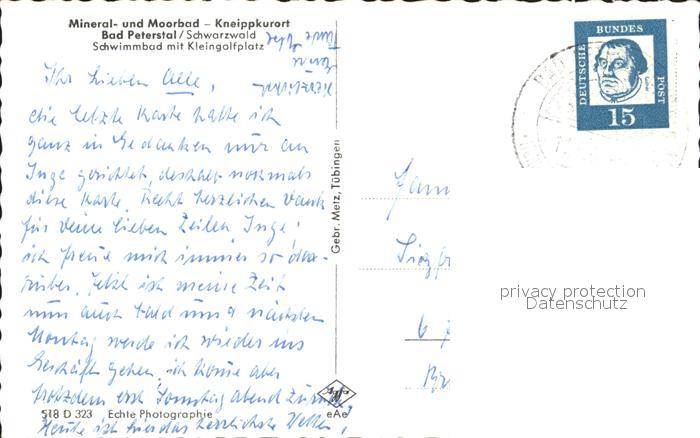 Mineral- und Moorbad – Kneippkurort
Bad Peterstal / Schwarzwald
Schwimmbad mit Kleingolfplatz
Ihr lieben Alle,
die letzte Karte hatte ich
ganz in Gedanken nur an
Inge gerichtet, deshalb nochmals
diese Karte. Recht herzlichen Dank
für Deine lieben Zeilen Inge!
ich freue mich immer so dar-
über. Jetzt ist meine Zeit
nun auch bald um u nächsten
Montag werde ich wieder ins
Geschäft gehen, ich komme aber
trotzdem erst Sonntag abend zurück
Heute ist hier das herrlichste Wetter,
518 D 323 Echte Photographie
Agfa
eAe
Gebr. Metz, Tübingen
DEUTSCHE
BUNDES
POST
15
Fam
privacy protection
Datenschutz